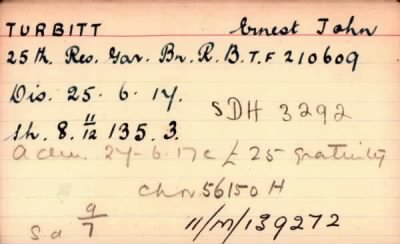 TURBITT Ernest John
25th. Res. Gar. Bn. R. B. T. F 210609
Dis. 25. 6. 17.
SDH 3292
8. 11/12 135. 3.
24-6-17 £25 gratuity
56150 H
9/7
11/M/139272